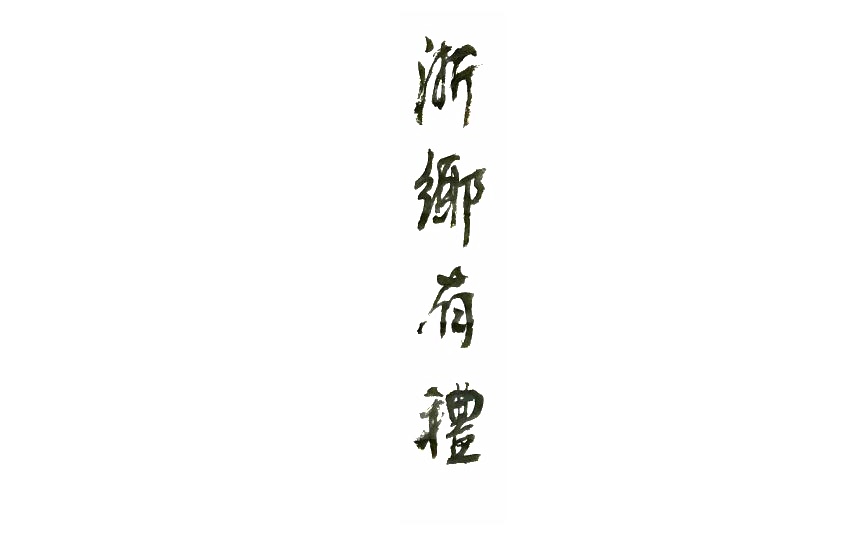 浙鄉有禮